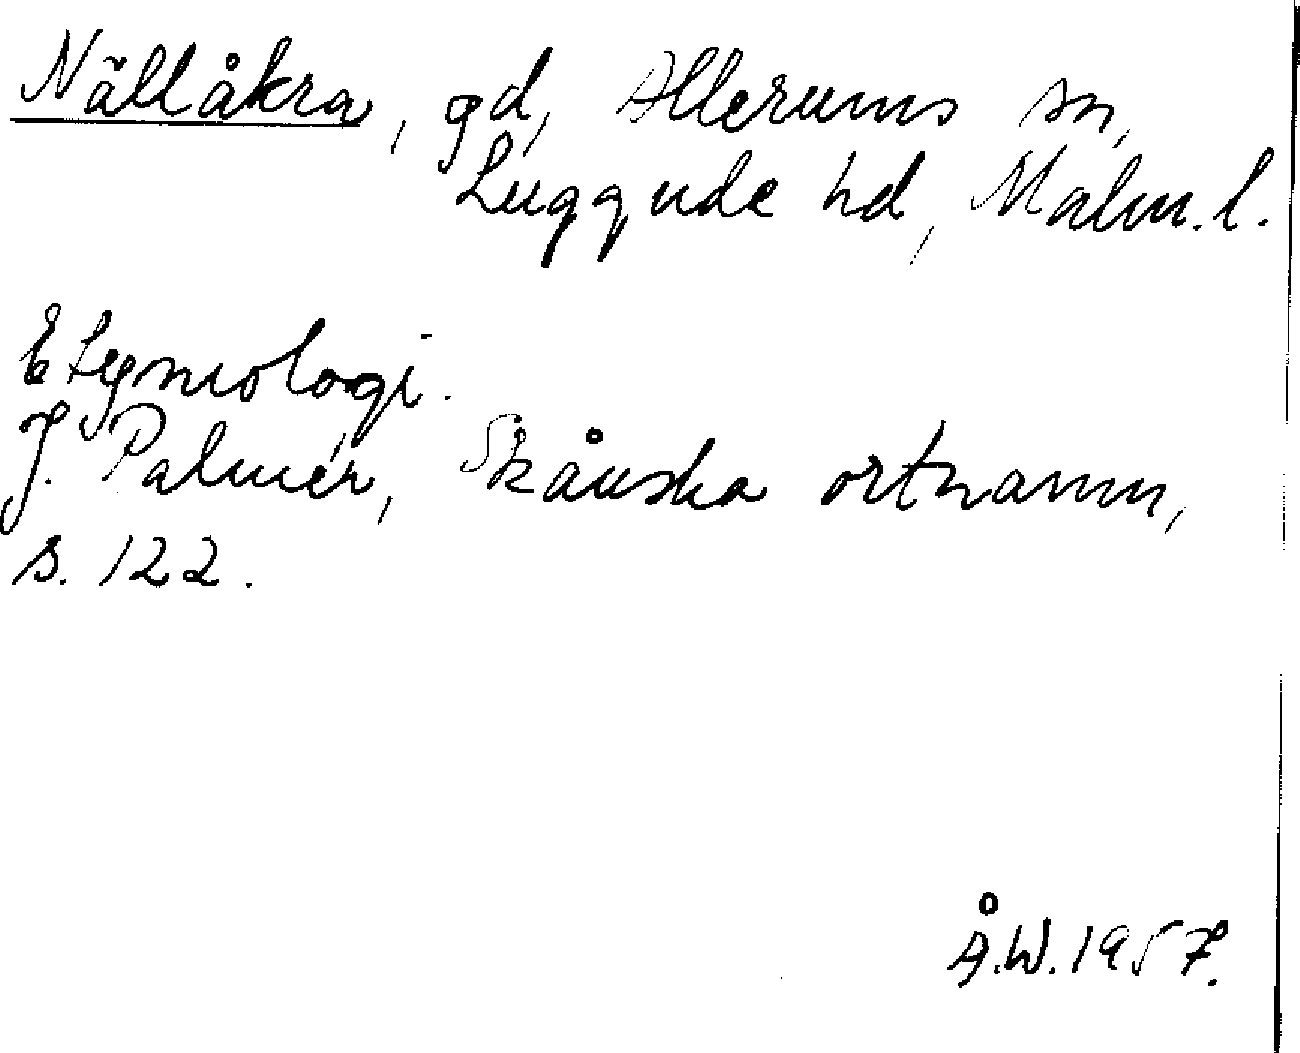 Nällåkra, gd, Allerums sn,
Luggude hd, Malm. l.
Etymologi.
J. Palmér, Skånska ortnamn,
s. 122.
Å.W. 1957.